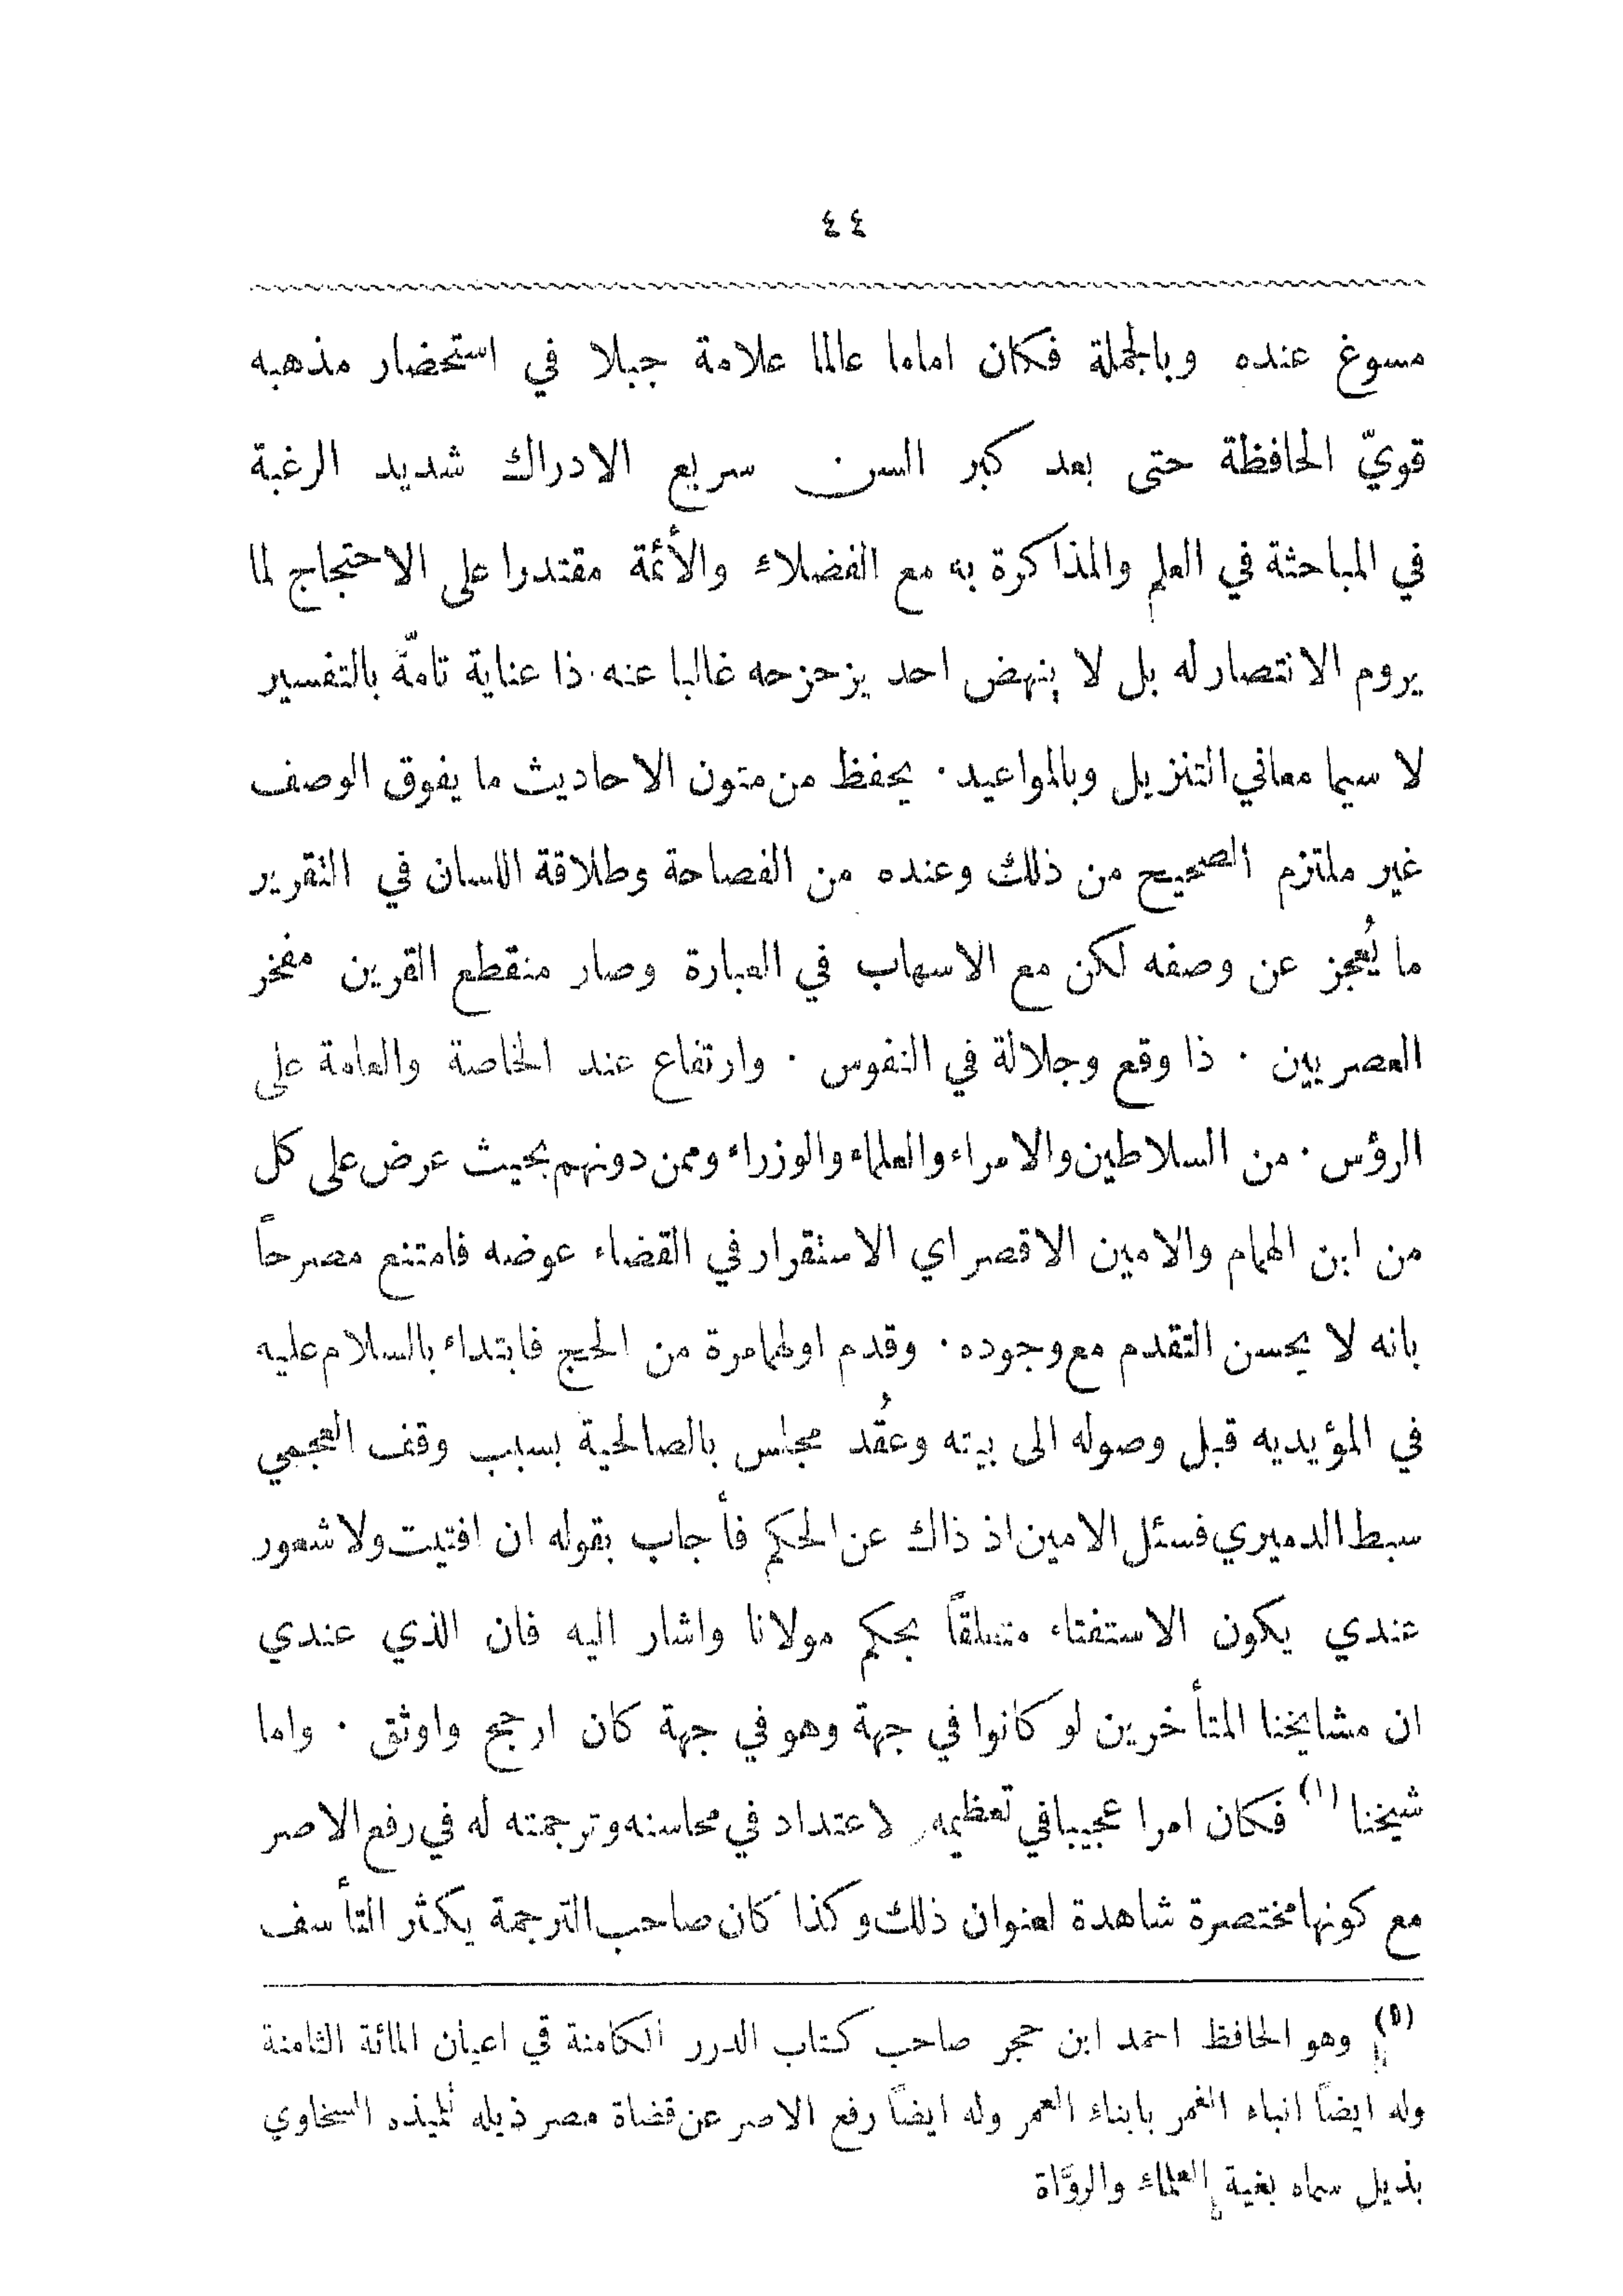 ٤٤
مسوغ عنده وبالجملة فكان اماما عالما علامة جبلا في استحضار مذهبه
قويّ الحافظة حتى بعد كبر السن سريع الادراك شديد الرغبة
في المباحثة في العلم والمذاكرة به مع الفضلاء والأئمة مقتدرا على الاحتجاج لما
يروم الانتصار له بل لا ينهض احد يزحزحه غالبا عنه · ذا عناية تامّة بالتفسير
لا سيما معاني التنزيل وبالمواعيد · يحفظ من متون الاحاديث ما يفوق الوصف
غير ملتزم الصحيح من ذلك وعنده من الفصاحة وطلاقة اللسان في التقرير
ما يُعجز عن وصفه لكن مع الاسهاب في العبارة وصار منقطع القرين مفخر
العصريين · ذا وقع وجلالة في النفوس · وارتفاع عند الخاصة والعامة على
الرؤس · من السلاطين والامراء والعلماء والوزراء وممن دونهم بحيث عرض على كل
من ابن الهمام والامين الاقصراي الاستقرار في القضاء عوضه فامتنع مصرحاً
بانه لا يحسن التقدم مع وجوده · وقدم اولهما مرة من الحج فابتداء بالسلام عليه
في المؤيديه قبل وصوله الى بيته وعُقد مجلس بالصالحية بسبب وقف العجمي
سبط الدميري فسئل الامين اذ ذاك عن الحكم فأجاب بقوله ان افتيت ولا شعور
عندي يكون الاستفتاء متعلقاً بحكم مولانا واشار اليه فان الذي عندي
ان مشايخنا المتأخرين لو كانوا في جهة وهو في جهة كان ارجح واوثق · واما
شيخنا (١) فكان امرا عجيبا في تعظيمه لاعتداد في محاسنه وترجمته له في رفع الاصر
مع كونها مختصرة شاهدة لعنوان ذلك وكذا كان صاحب الترجمة يكثر التأسف
(١) وهو الحافظ احمد ابن حجر صاحب كتاب الدرر الكامنة في اعيان المائة الثامنة
وله ايضاً انباء الغمر بابناء العمر وله ايضاً رفع الاصر عن قضاة مصر ذيله تلميذه السخاوي
بذيل سماه بغية العلماء والروَّاة